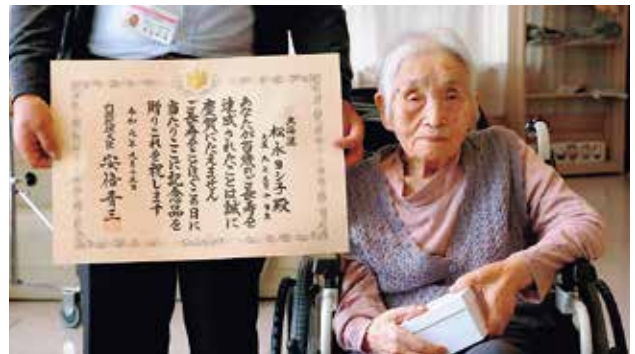 北海道
松永ヨシ子殿
あなたが百歳のご長寿を
達成されたことは誠に
慶賀にたえません
ご長寿をことほぐ日に
当たりここに記念品を
贈りこれを祝します
内閣総理大臣 安倍晋三